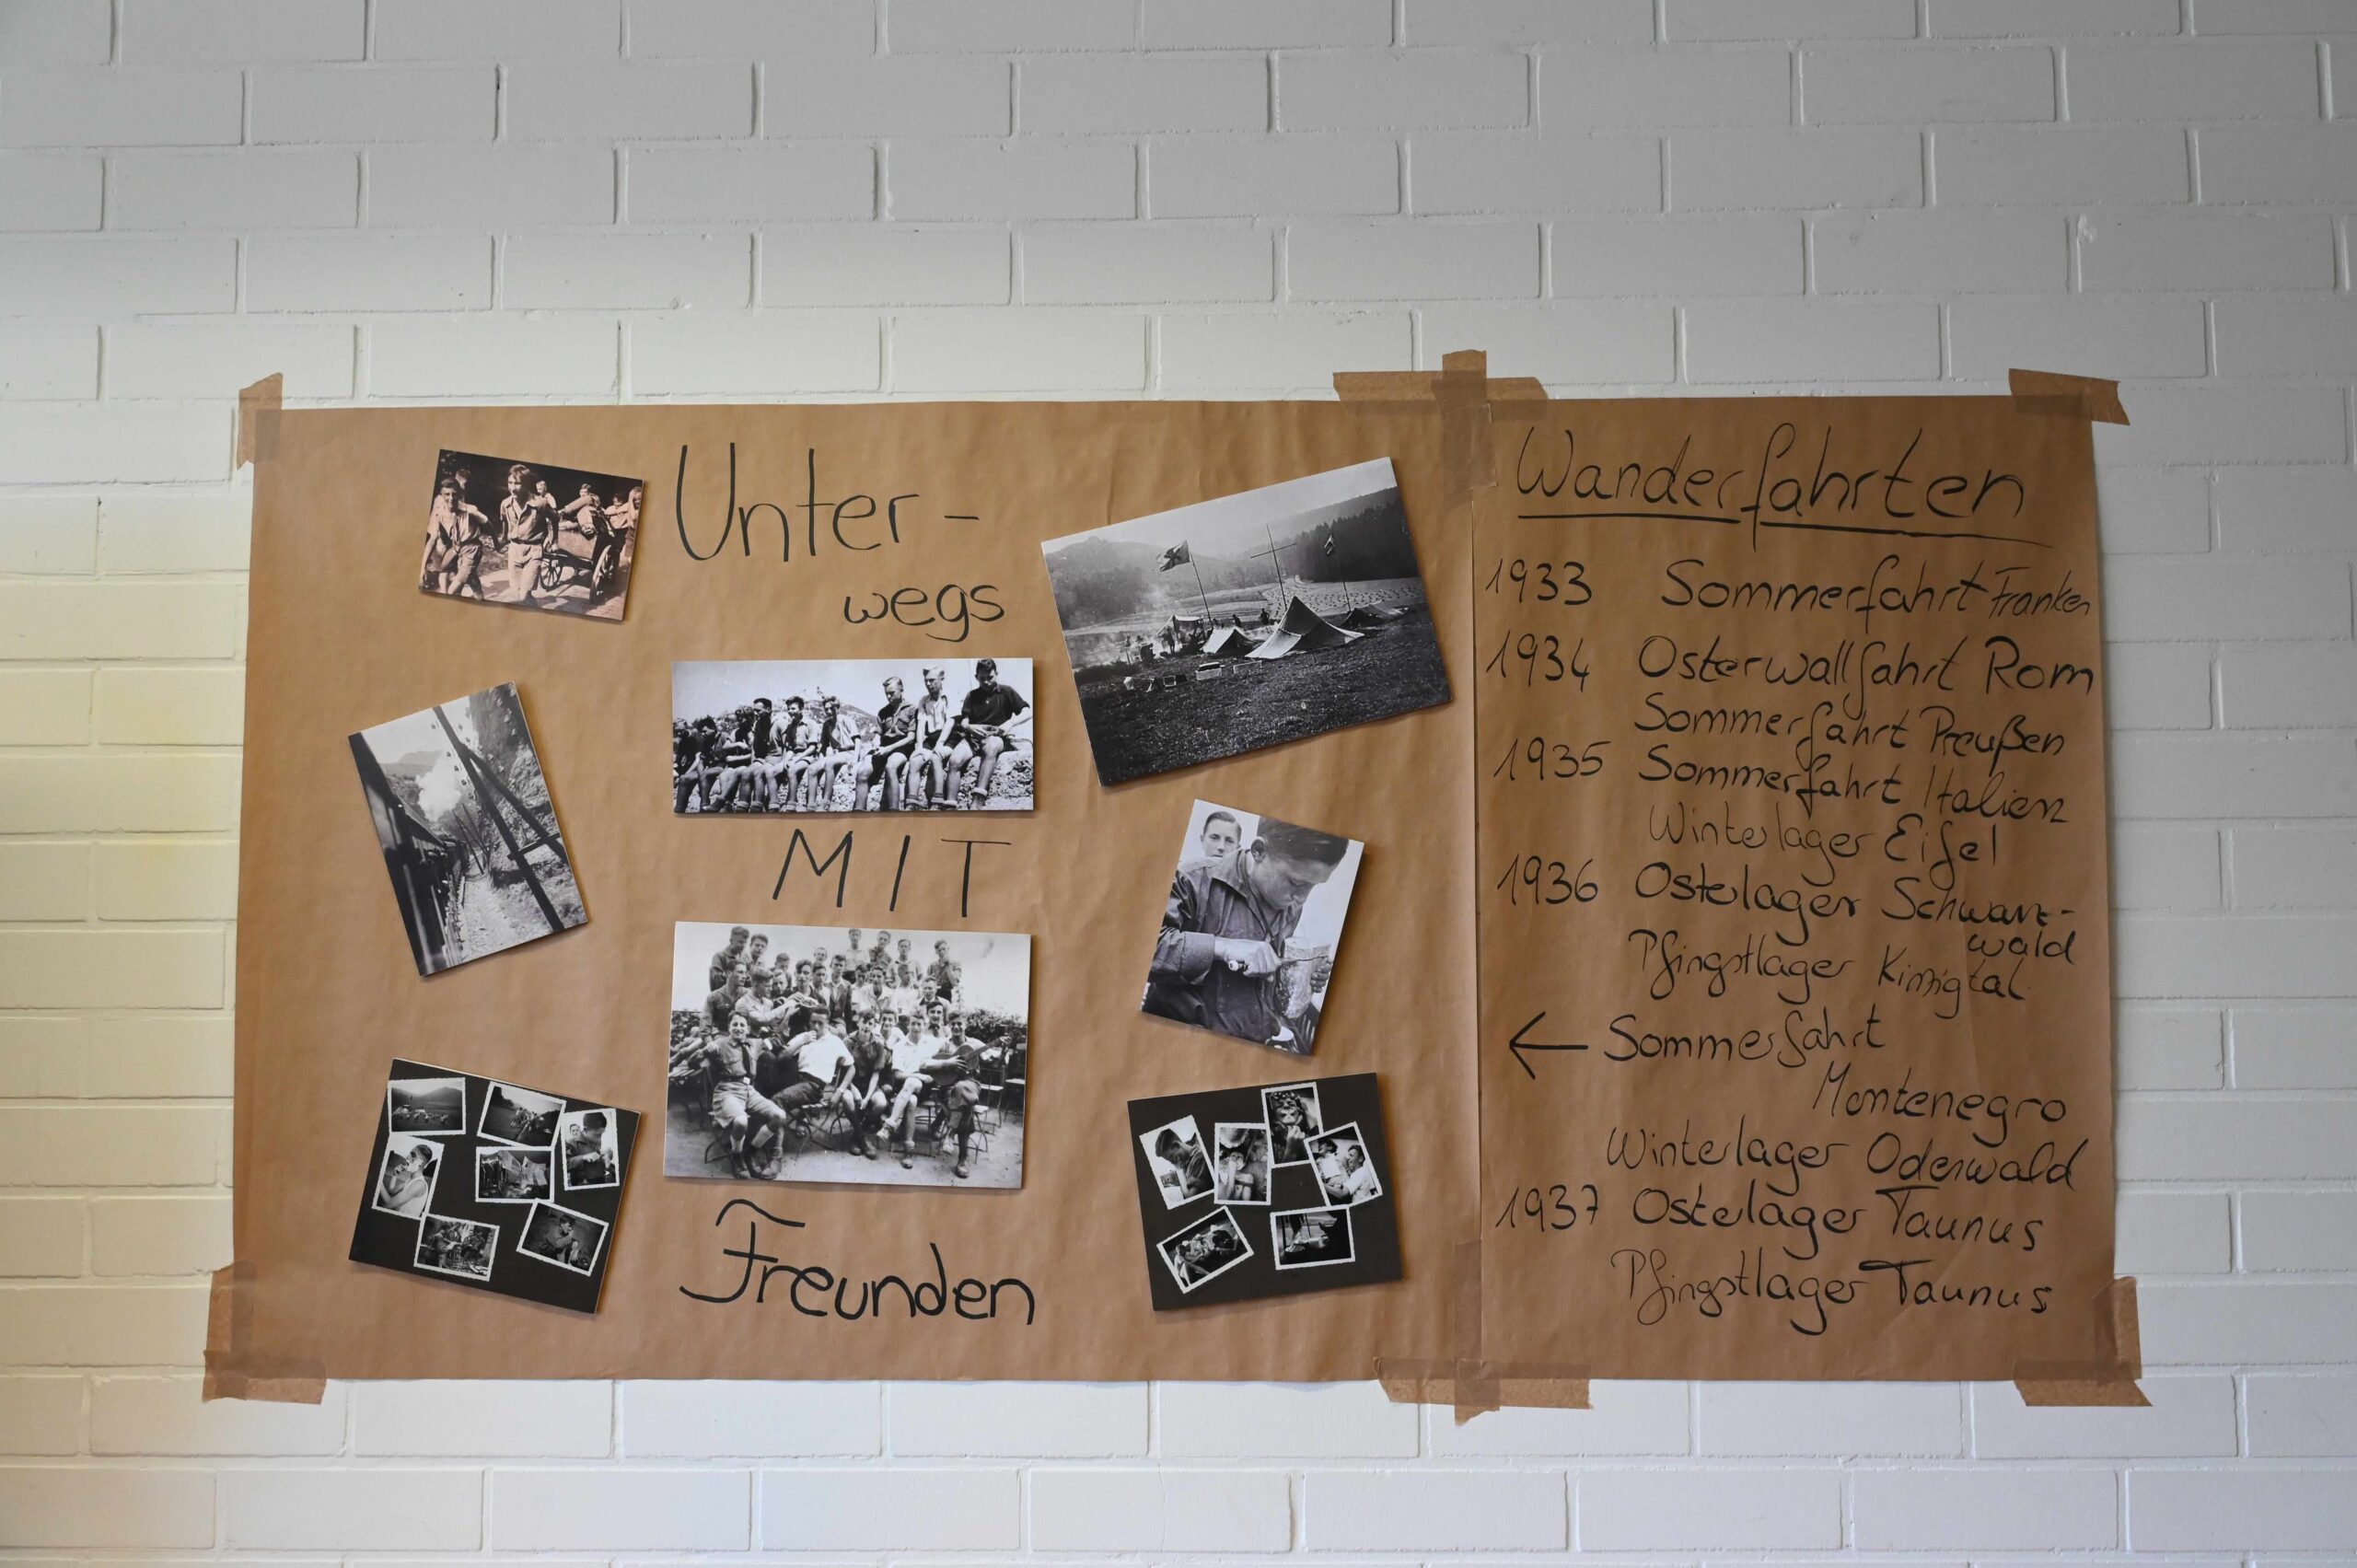 Unter-
wegs
MIT
Freunden
Wanderfahrten
1933 Sommerfahrt Franken
1934 Osterwallfahrt Rom
Sommerfahrt Preußen
1935 Sommerfahrt Italien
Winterlager Eifel
1936 Osterlager Schwarz-
wald
Pfingstlager Kinzigtal
← Sommerfahrt
Montenegro
Winterlager Odenwald
1937 Osterlager Taunus
Pfingstlager Taunus